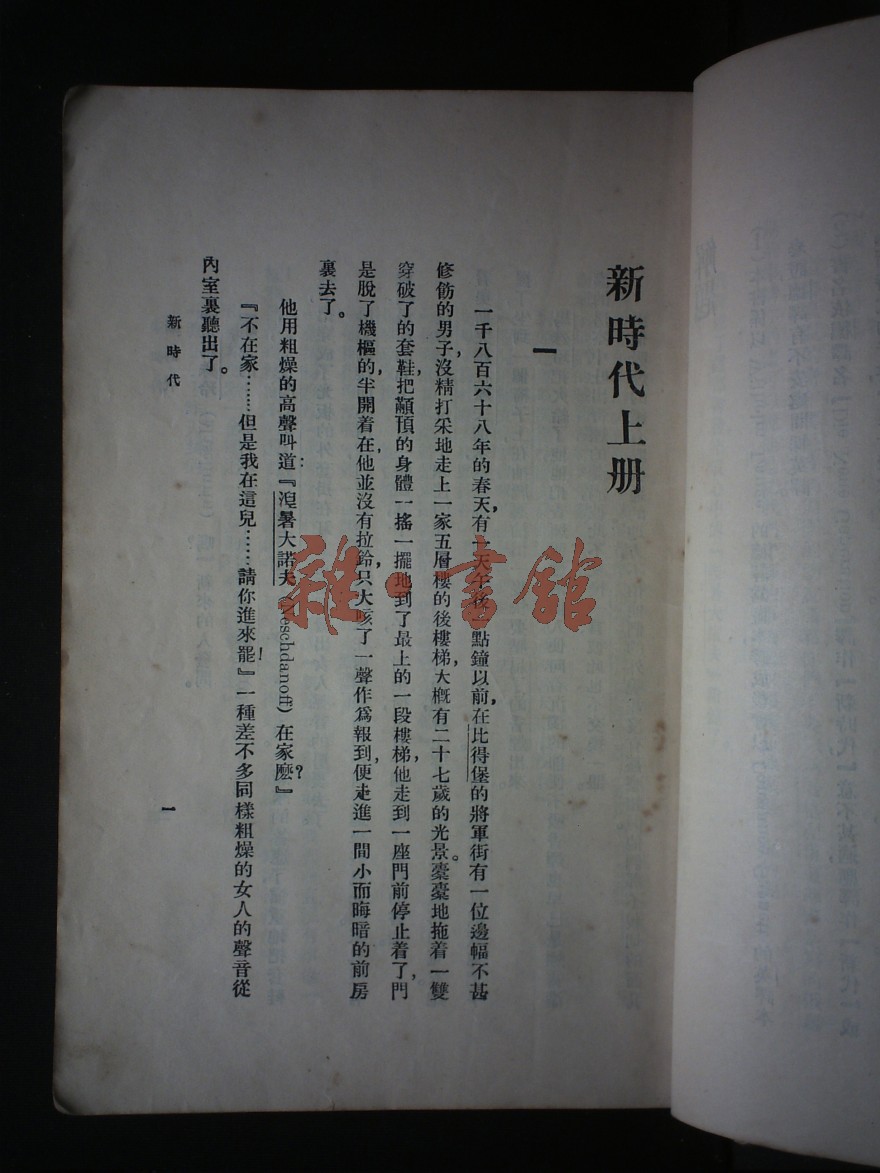 新時代上册
一
一千八百六十八年的春天，有一天午後一點鐘以前，在比得堡的將軍街有一位邊幅不甚
修飭的男子，沒精打采地走上一家五層樓的後樓梯，大概有二十七歲的光景。橐橐地拖着一雙
穿破了的套鞋，把顢頇的身體一搖一擺地到了最上的一段樓梯，他走到一座門前停止着了，門
是脫了機樞的，半開着在，他並沒有拉鈴，只大咳了一聲作爲報到，便走進一間小而晦暗的前房
裏去了。
他用粗燥的高聲叫道：『湼暑大諾夫 (Neschdanoff) 在家麽？』
『不在家……但是我在這兒……請你進來罷！』一種差不多同樣粗燥的女人的聲音從
內室裏聽出了。
新時代
一
雜·書館